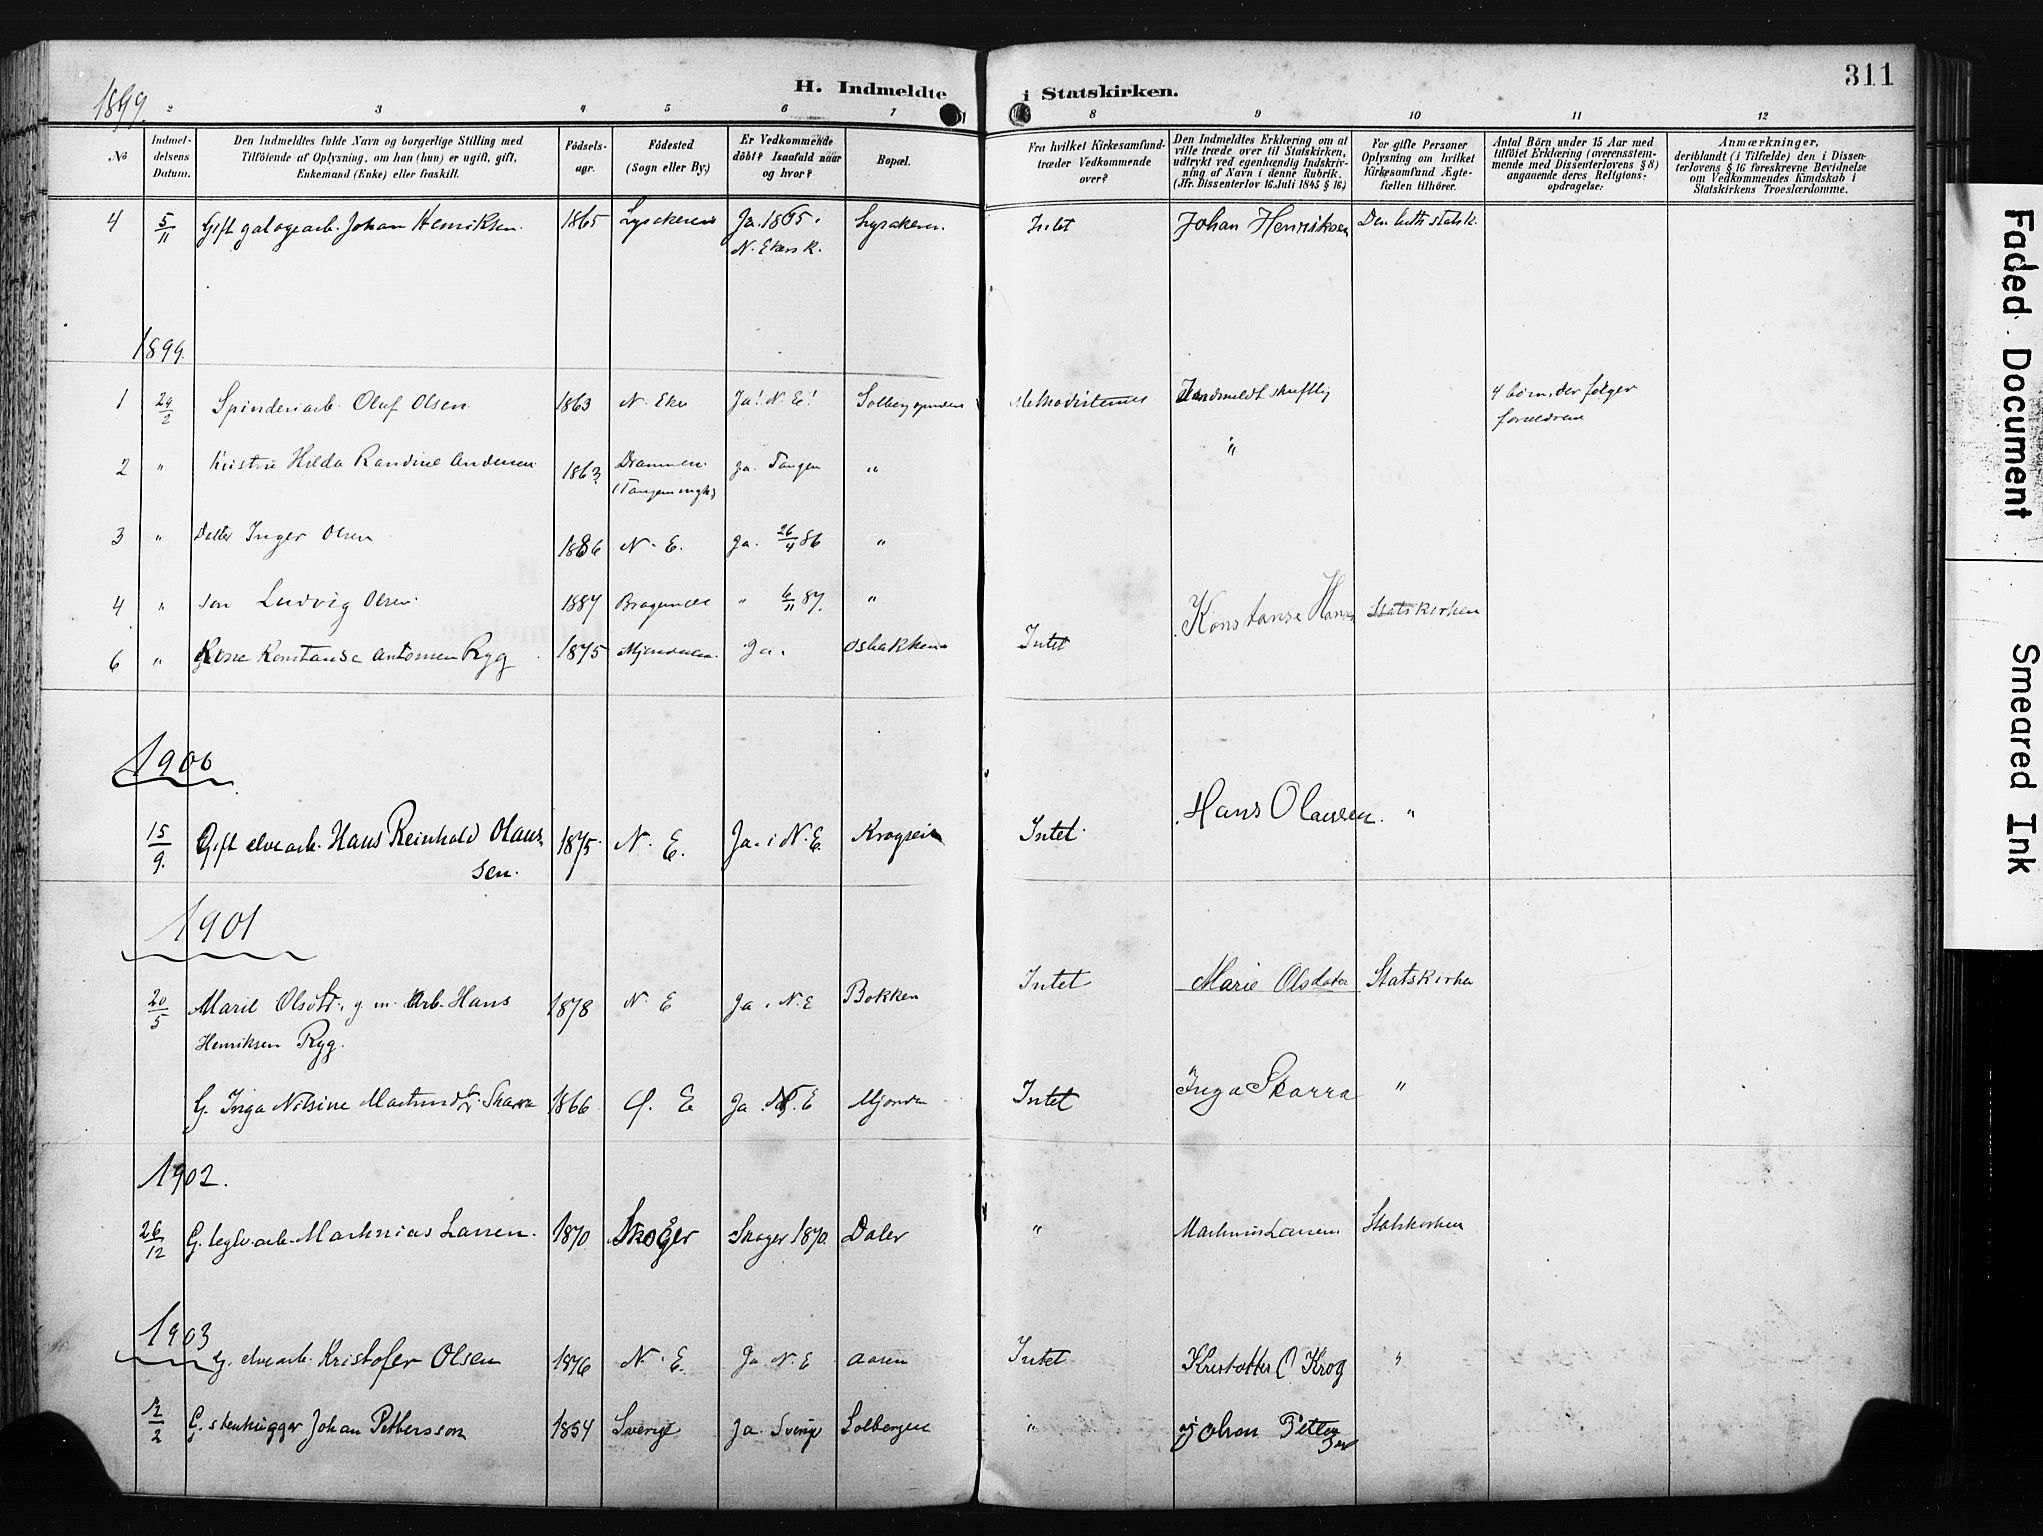 1899.
H. Indmeldte i Statskirken.
311
2 3 4 5 6 7 8 9 10 11 12
No
Indmeldelsens Datum.
Den Indmeldtes fulde Navn og borgerlige Stilling med
Tilföiende af Oplysning, om han (hun) er ugift, gift,
Enkemand (Enke) eller fraskilt.
Födsels-
aar.
Födested
(Sogn eller By.)
Er Vedkommende
döbt? Isaafald naar
og hvor?
Bopæl.
Fra hvilket Kirkesamfund.
træder Vedkommende
over?
Den Indmeldtes Erklæring om at
ville træde over til Statskirken,
udtrykt ved egenhændig Indskriv-
ning af Navn i denne Rubrik.
(Jfr. Dissenterlov 16 Juli 1845 § 16)
For gifte Personer
Oplysning om hvilket
Kirkesamfund Ægte-
fællen tilhörer.
Antal Börn under 15 Aar med
tilföiet Erklæring (overensstem-
mende med Dissenterlovens § 8)
angaaende deres Religions-
opdragelse:
Anmærkninger,
deriblandt (i Tilfælde) den i Dissen-
terlovens § 16 foreskrevne Bevidnelse
om Vedkommendes Kundskab i
Statskirkens Troeslærdomme.
4 5/11 Gift Johan Henriksen. 1865 Ja. 1865. Intet Johan Henriksen Den luth statsk.
N. Ekersk.
1899.
1 24/2 Spinderiarb. Oluf Olsen 1863 N. Eker Ja! N. E! Methodisternes Indmeldt skriftlig 4 börn, der følger
forældrene
2 " Hustru Hilda Randine Andersen 1863 Drammen. Ja. Tangen " "
3 " Datter Inger Olsen 1886 N. E. Ja. 26/4 86 "
4 " Son Ludvig Olsen 1887 Bragernes " 6/11 87. "
6 " Kone Konstanse Antonsen Ryg 1875 Mjøndalen Ja. Osbakken Intet Konstanse Hansen Statskirken
1900
15/9. Gift elvearb. Hans Reinhold Olaus-
sen. 1875. N. E. Ja. i N. E. Intet. Hans Olausen. "
1901
20/5 Marie Olsdtr. g. m. Arb. Hans
Henriksen Ryg. 1878 N. E Ja. N. E Bakken Intet Marie Olsdater Statskirken
G. Inga Nilsine Skarra 1866 Ø. E Ja. N. E Intet Inga Skarra "
1902.
26/12 G. teglv.arb. Martinius Larsen. 1870 Skoger Skoger 1870. Daler " Martinius Larsen Statskirken
1903
G. elvearb. Kristofer Olsen 1876 N. E. Ja. N. E Aasen Intet Kristoffer O Krog "
12/2 G. stenhugger Johan Pettersson 1854 Sverige Ja. Sverige Solbergen " Johan Petterson
Faded Document
Smeared Ink